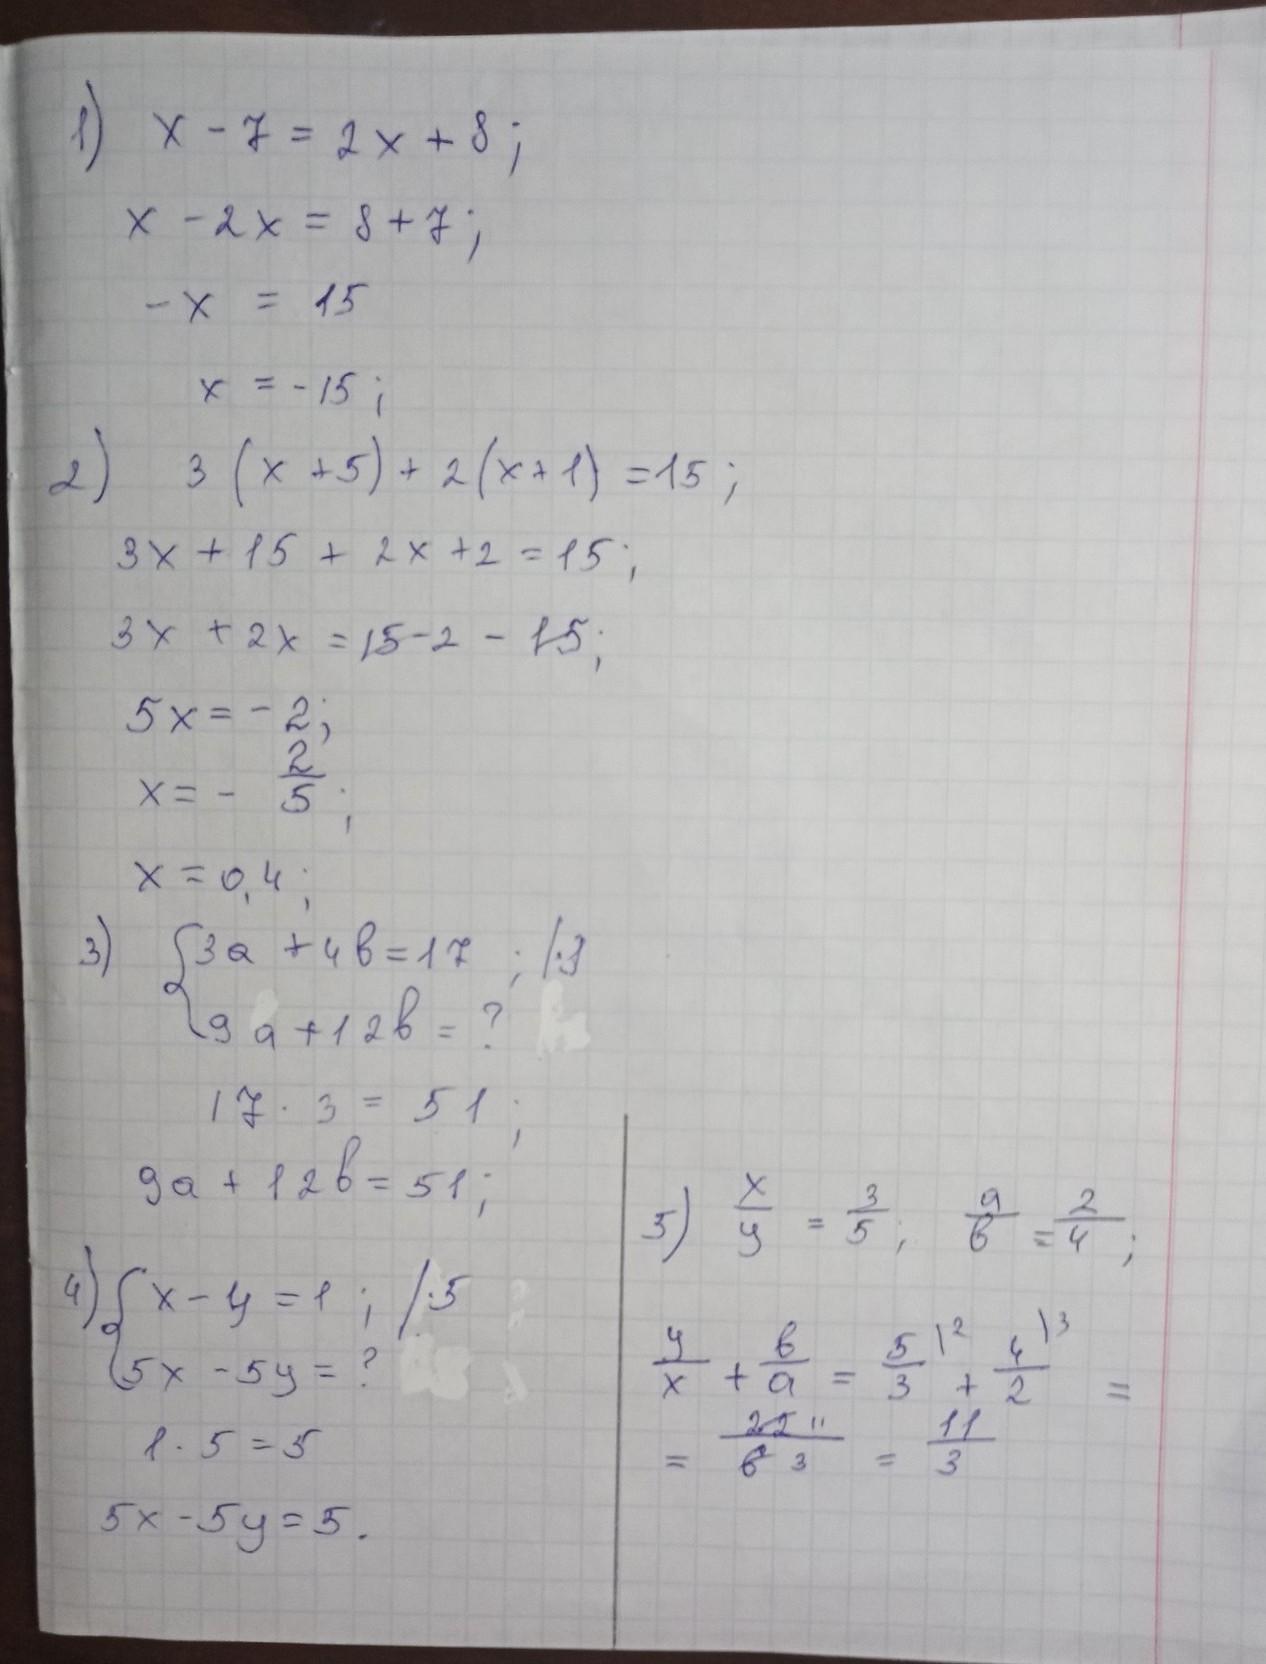 1) x - 7 = 2x + 8;
x - 2x = 8 + 7;
-x = 15
x = -15;
2) 3(x + 5) + 2(x + 1) = 15;
3x + 15 + 2x + 2 = 15;
3x + 2x = 15 - 2 - 15;
5x = -2;
x = - 2/5;
x = 0,4;
3) { 3a + 4b = 17; /·3
9a + 12b = ?
17 · 3 = 51;
9a + 12b = 51;
4) { x - y = 1; /·5
5x - 5y = ?
1 · 5 = 5
5x - 5y = 5.
5) x/y = 3/5; a/b = 2/4;
y/x + b/a = 5/3 \2 + 4/2 \3 =
= 22 11/6 3 = 11/3